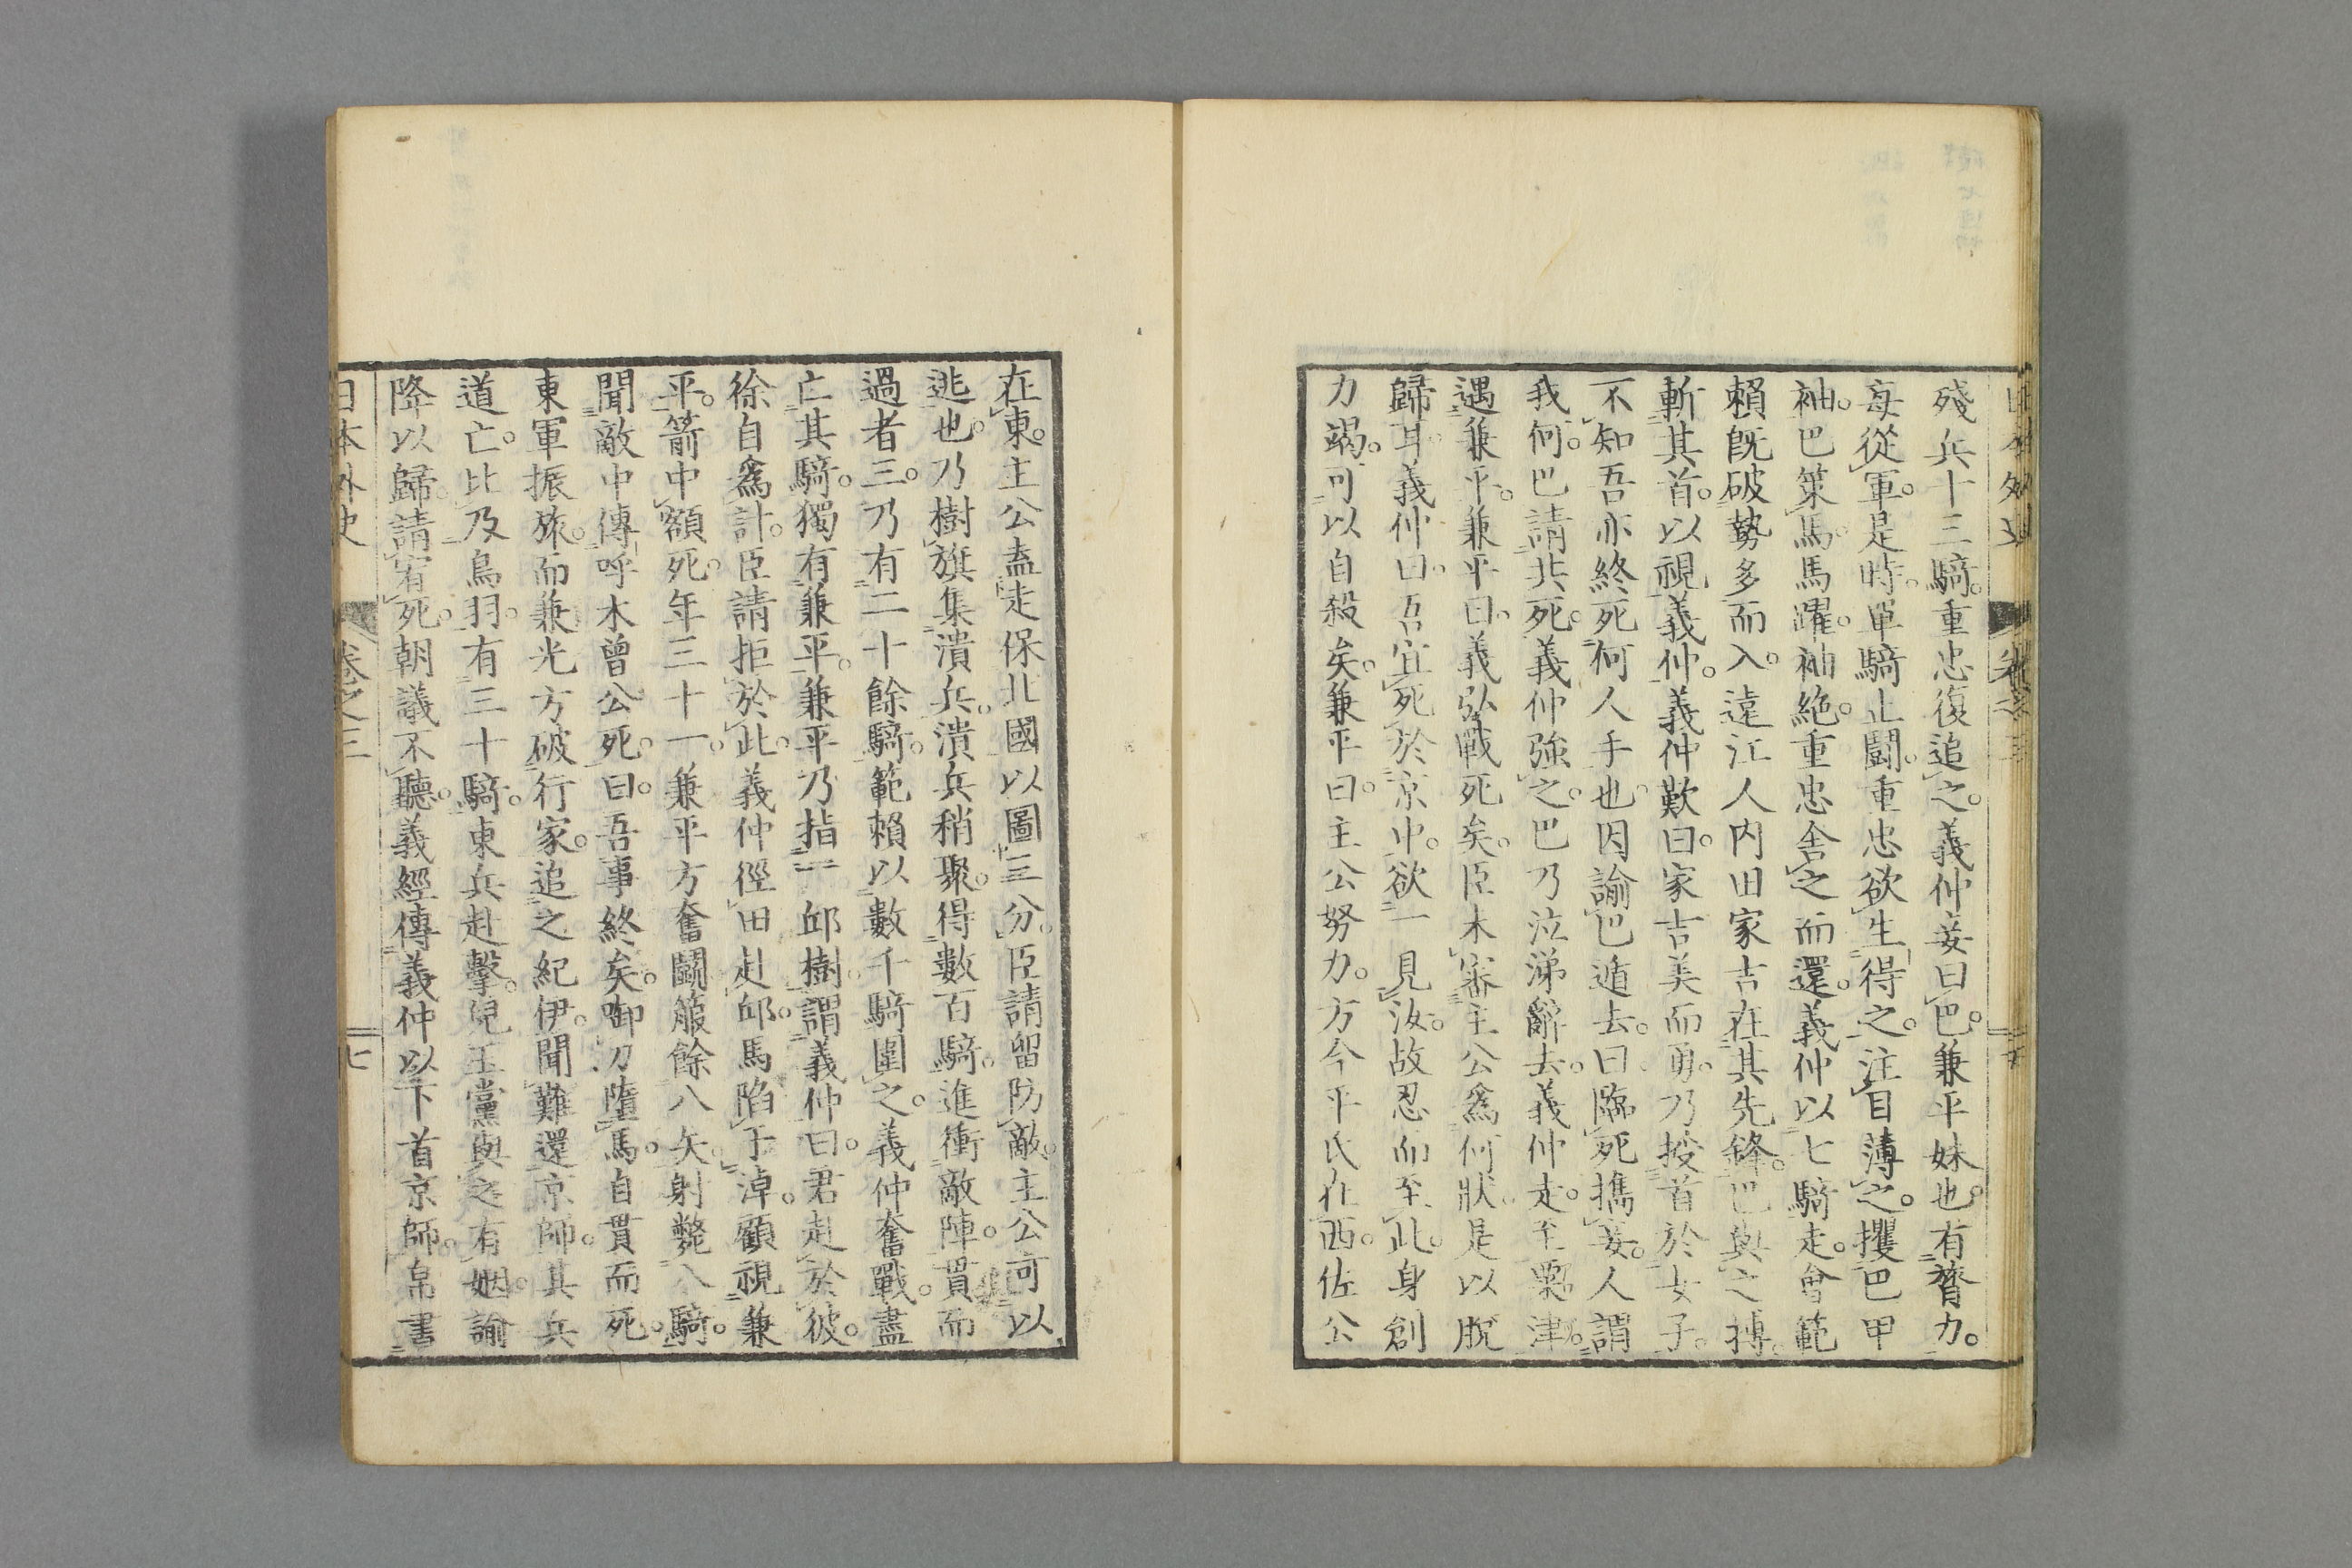 殘兵十三騎。重忠復追之。義仲妾曰巴。兼平妹也。有膂力。
每從軍。是時。單騎止鬪。重忠欲生得之。注目薄之。攫巴甲
袖。巴策馬。馬躍。袖絶。重忠舍之而還。義仲以七騎走。會範
賴既破勢多而入。遠江人内田家吉在其先鋒。巴與之搏。
斬其首。以視義仲。義仲歎曰。家吉美而勇。乃授首於女子。
不知吾亦終死何人手也。因諭巴遁去。曰臨死攜妾。人謂
我何。巴請共死。義仲強之。巴乃泣涕辭去。義仲走。至粟津。
遇兼平。兼平曰。義弘戰死矣。臣未審主公爲何狀。是以脫
歸耳。義仲曰。吾宜死於京中。欲一見汝。故忍而至此。身創
力竭。可以自殺矣。兼平曰。主公努力。方今平氏在西。佐公
在東。主公盍走保北國以圖三分。臣請留防敵。主公可以
逃也。乃樹旗集潰兵。潰兵稍聚。得數百騎。進衝敵陣。貫而
過者三。乃有二十餘騎。範賴以數千騎圍之。義仲奮戰。盡
亡其騎。獨有兼平。兼平乃指一邱樹。謂義仲曰。君赴於彼。
徐自爲計。臣請拒於此。義仲徑田赴邱。馬陷于淖。顧視兼
平。箭中額死。年三十一。兼平方奮鬪。箙餘八矢。射斃八騎。
聞敵中傳呼木曾公死。曰。吾事終矣。啣刀墮馬。自貫而死。
東軍振旅。而兼光方破行家。追之紀伊。聞難還京師。其兵
道亡。比及鳥羽。有三十騎。東兵赴擊。兒玉黨與之有姻。諭
降以歸。請宥死。朝議不聽。義經傳義仲以下首京師。帛書
日本外史 卷之三 七